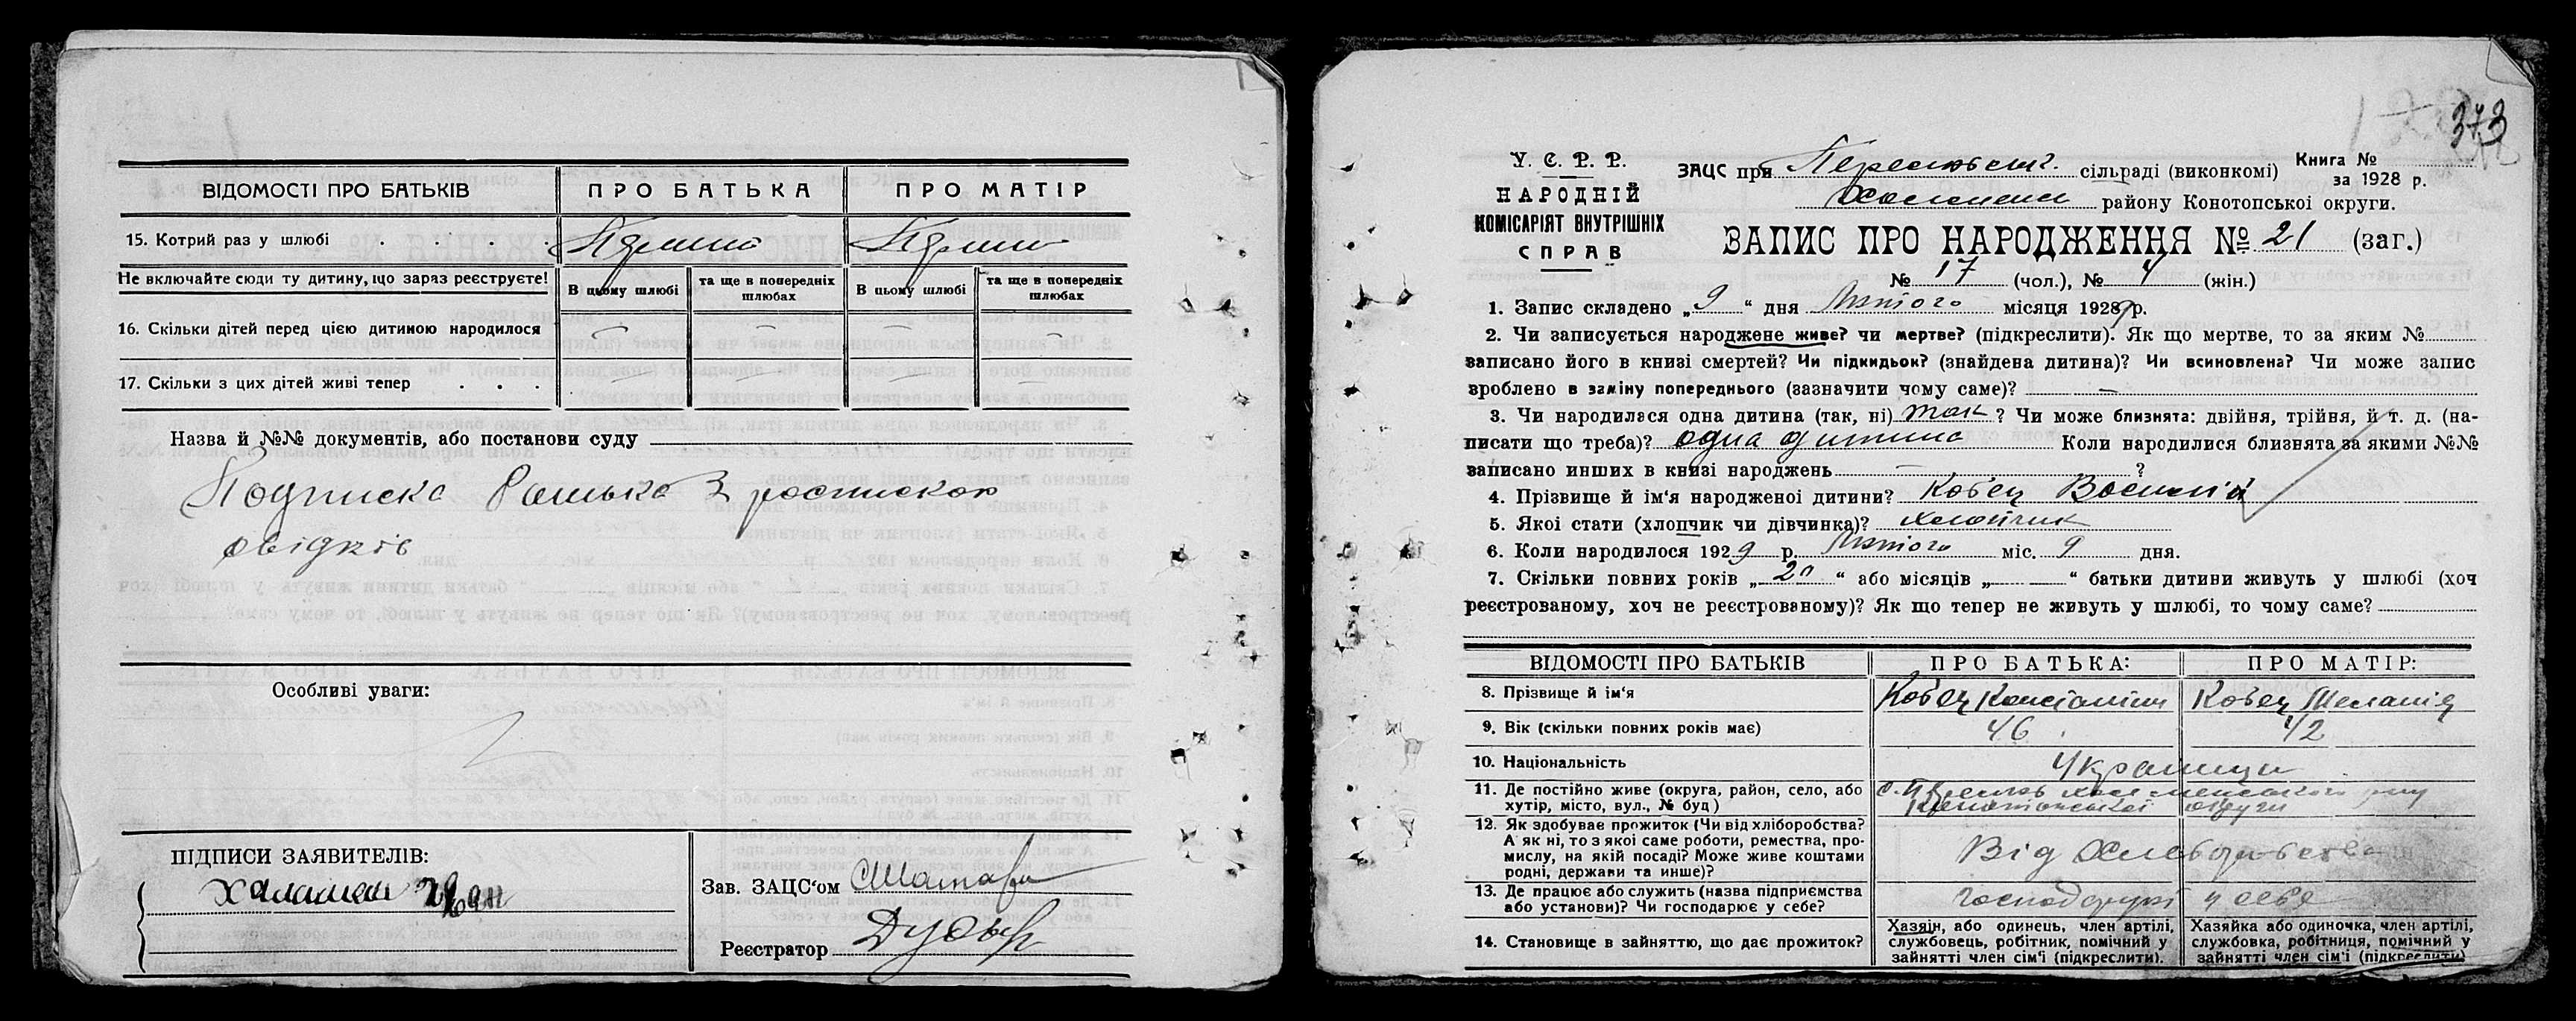 ВІДОМОСТІ ПРО БАТЬКІВ
ПРО БАТЬКА
ПРО МАТІР
15. Котрий раз у шлюбі . . . .
Не включайте сюди ту дитину, що зараз реєструєте!
В цьому шлюбі
та ще в попередніх шлюбах
В цьому шлюбі
та ще в попередніх шлюбах
16. Скільки дітей перед цією дитиною народилося
— — — —
17. Скільки з цих дітей живі тепер . . .
— — — —
Назва й №№ документів, або постанови суду
Подписка батька з роспискою
свідків
Особливі уваги:
ПІДПИСИ ЗАЯВИТЕЛІВ:
Зав. ЗАЦС‘ом
Реєстратор
373
У. С. Р. Р.
НАРОДНІЙ
КОМІСАРІЯТ ВНУТРІШНІХ
СПРАВ
ЗАЦС при сільраді (виконкомі)
Книга №
за 1928 р.
району Конотопської округи.
ЗАПИС ПРО НАРОДЖЕННЯ № 21 (заг.)
№ 17 (чол.), № 4 (жін.)
1. Запис складено „9“ дня Лютого місяця 1929 р.
2. Чи записується народжене живе? чи мертве? (підкреслити). Як що мертве, то за яким №
записано його в книзі смертей? Чи підкидьок? (знайдена дитина)? Чи всиновлена? Чи може запис
зроблено в заміну попереднього (зазначити чому саме)? —
3. Чи народилася одна дитина (так, ні) так ? Чи може близнята: двійня, трійня, й т. д. (на-
писати що треба)? одна дитина Коли народилися близнята за якими №№
записано инших в книзі народжень — ?
4. Прізвище й ім‘я народженої дитини? Кобец Василій
5. Якої стати (хлопчик чи дівчинка)? хлопчик
6. Коли народилося 1929 р. Лютого міс. 9 дня.
7. Скільки повних років „20“ або місяців „ — “ батьки дитини живуть у шлюбі (хоч
реєстрованому, хоч не реєстрованому)? Як що тепер не живуть у шлюбі, то чому саме?
ВІДОМОСТІ ПРО БАТЬКІВ
ПРО БАТЬКА:
ПРО МАТІР:
8. Прізвище й ім‘я
Кобец Константин
Кобец Меланія
9. Вік (скільки повних років має)
46
42
10. Національність
Українці
11. Де постійно живе (округа, район, село, або
хутір, місто, вул., № буд)
Конотопської округи
12. Як здобуває прожиток (Чи від хліборобства?
А як ні, то з якої саме роботи, ремества, про-
мислу, на якій посаді? Може живе коштами
родні, держави та инше)?
Від Хлеборобства
13. Де працює або служить (назва підприємства
або установи)? Чи господарює у себе?
господарує у себе
14. Становище в зайняттю, що дає прожиток?
Хазяїн, або одинець, член артілі,
службовець, робітник, помічний у
зайнятті член сім‘ї (підкреслити).
Хазяйка або одиночка, член артілі,
службовка, робітниця, помічний у
зайнятті член сім‘ї (підкреслити)